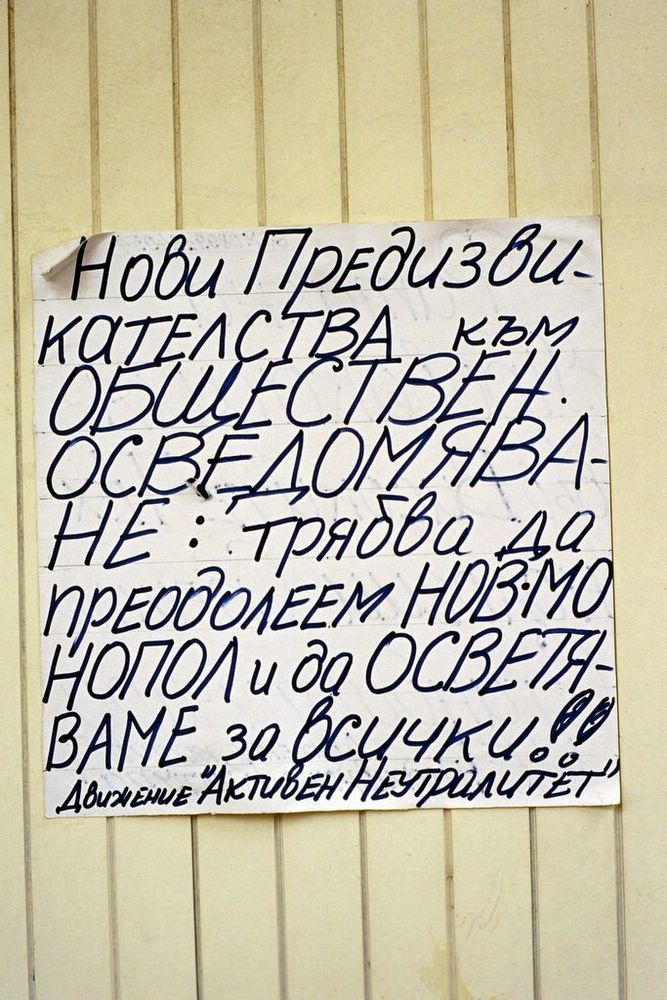 Нови Предизви-
кателства към
ОБЩЕСТВЕН.
ОСВЕДОМЯВА-
НЕ: трябва да
преодолеем НОВ·МО
НОПОЛ и да ОСВЕТЯ-
ВАМЕ за всички!!
Движение "Активен Неутралитет"